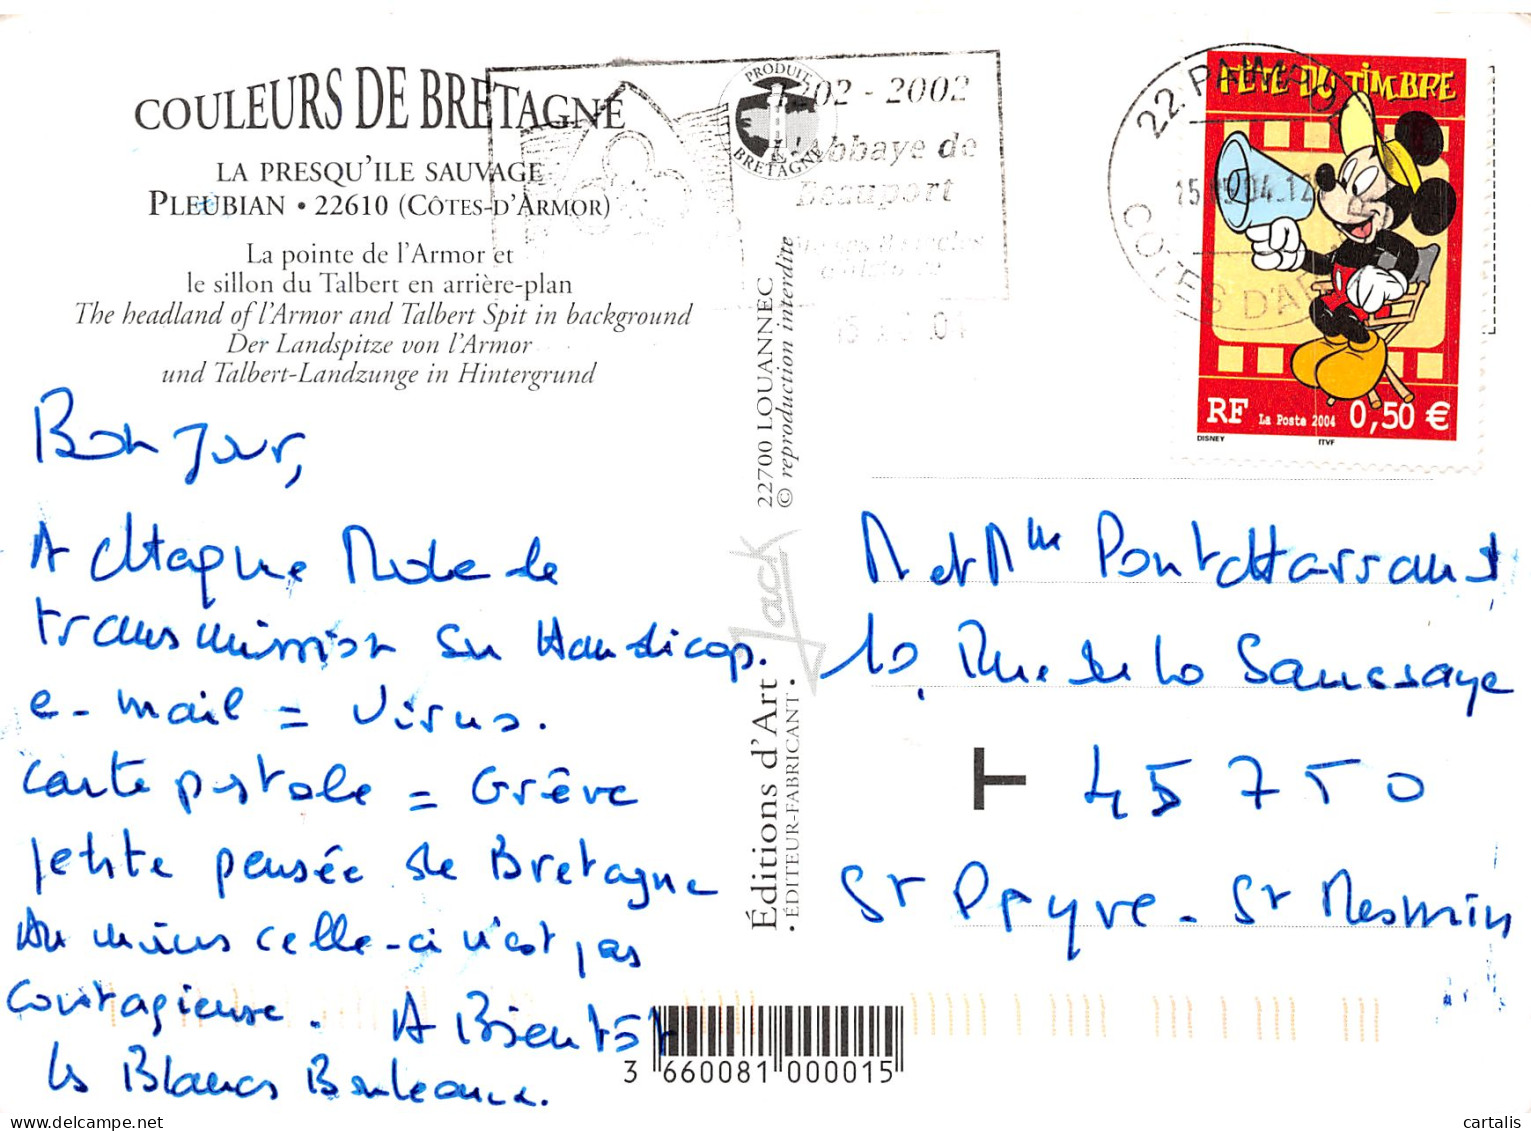 COULEURS DE BRETAGNE
LA PRESQU'ILE SAUVAGE
PLEUBIAN • 22610 (CÔTES-D'ARMOR)
La pointe de l'Armor et
le sillon du Talbert en arrière-plan
The headland of l'Armor and Talbert Spit in background
Der Landspitze von l'Armor
und Talbert-Landzunge in Hintergrund
PRODUIT
BRETAGNE
1202 - 2002
L'Abbaye de
Beauport
22. PAIMPOL
COTES D'ARMOR
FÊTE DU TIMBRE
RF La Poste 2004 0,50 €
DISNEY ITVF
Bonjour,
A chaque Mode de
transmission son Handicap.
e-mail = Virus.
carte postale = Grève
petite pensée de Bretagne
Au moins celle-ci n'est pas
contagieuse. A Bientôt
Les Blancs Bonleaux.
22700 LOUANNEC
© reproduction interdite
Jack
Éditions d'Art
• ÉDITEUR-FABRICANT •
M et Mme Pontcharraud
10, Rue de la Saussaye
T 45750
St Pryvé-St Mesmin
3 660081 000015
cartalis.com